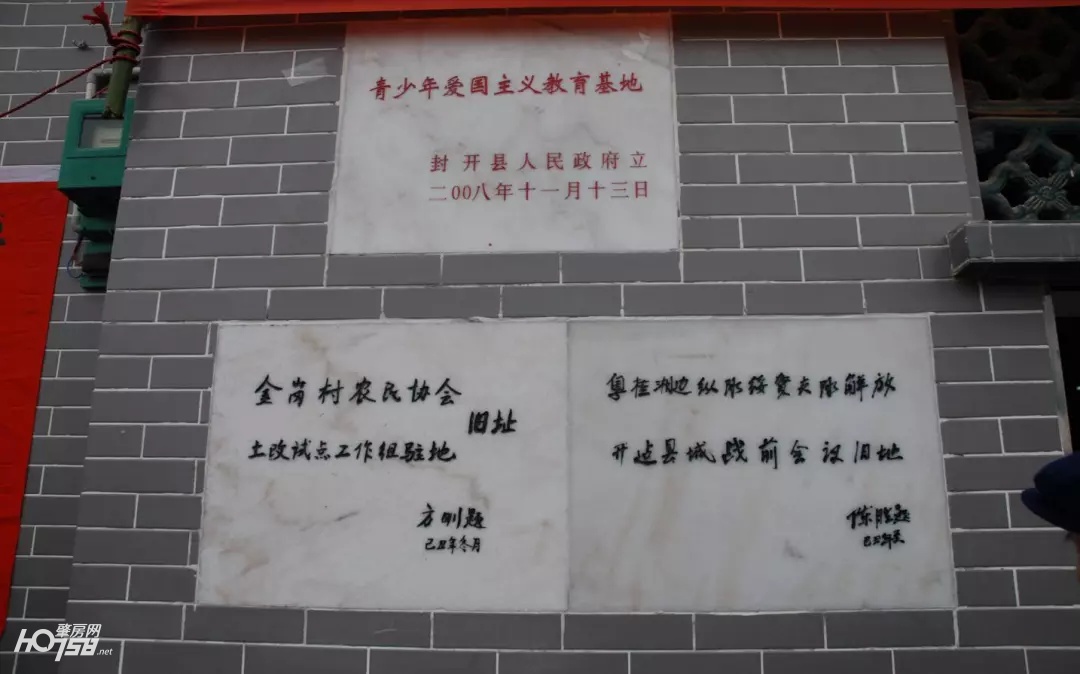 青少年爱国主义教育基地
封开县人民政府立
二00八年十一月十三日
金岗村农民协会
旧址
土改试点工作组驻地
方刚题
己丑年冬月
粤桂湘边纵队绥贺支队解放
开建县城战前会议旧地
陈胜题
己丑年冬
肇房网
HO758.net